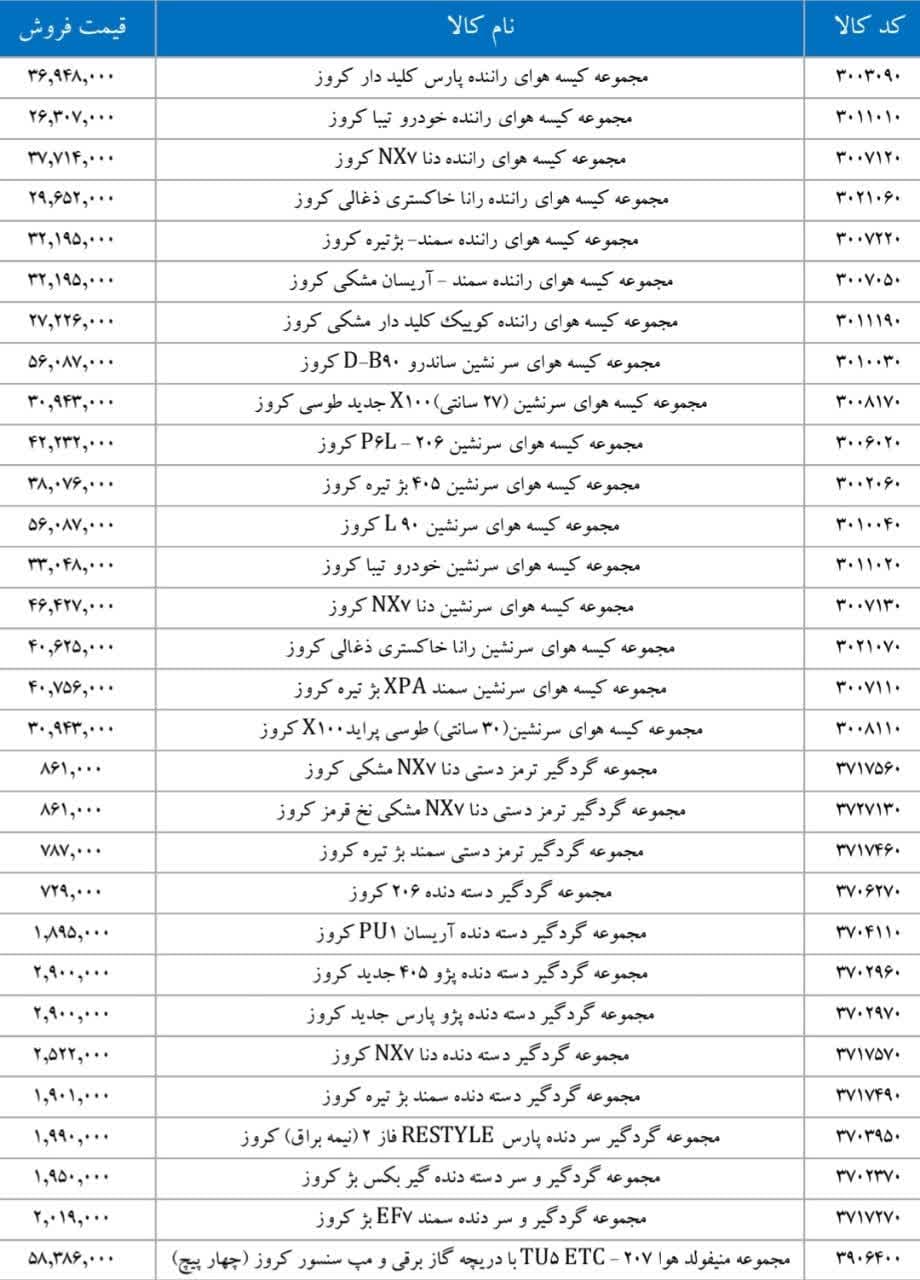 کد کالا نام کالا قیمت فروش
۳۰۰۳۰۹۰ مجموعه کیسه هوای راننده پارس کلید دار کروز ۳۶,۹۴۸,۰۰۰
۳۰۱۱۰۱۰ مجموعه کیسه هوای راننده خودرو تیبا کروز ۲۶,۳۰۷,۰۰۰
۳۰۰۷۱۲۰ مجموعه کیسه هوای راننده دنا NX۷ کروز ۳۷,۷۱۴,۰۰۰
۳۰۲۱۰۶۰ مجموعه کیسه هوای راننده رانا خاکستری ذغالی کروز ۲۹,۶۵۲,۰۰۰
۳۰۰۷۲۲۰ مجموعه کیسه هوای راننده سمند- بژتیره کروز ۳۲,۱۹۵,۰۰۰
۳۰۰۷۰۵۰ مجموعه کیسه هوای راننده سمند - آریسان مشکی کروز ۳۲,۱۹۵,۰۰۰
۳۰۱۱۱۹۰ مجموعه کیسه هوای راننده کوییک کلید دار مشکی کروز ۲۷,۲۲۶,۰۰۰
۳۰۱۰۰۳۰ مجموعه کیسه هوای سر نشین ساندرو D-B۹۰ کروز ۵۶,۰۸۷,۰۰۰
۳۰۰۸۱۷۰ مجموعه کیسه هوای سرنشین (۲۷ سانتی)X۱۰۰ جدید طوسی کروز ۳۰,۹۴۳,۰۰۰
۳۰۰۶۰۲۰ مجموعه کیسه هوای سرنشین ۲۰۶ - P۶L کروز ۴۲,۲۳۲,۰۰۰
۳۰۰۲۰۶۰ مجموعه کیسه هوای سرنشین ۴۰۵ بژ تیره کروز ۳۸,۰۷۶,۰۰۰
۳۰۱۰۰۴۰ مجموعه کیسه هوای سرنشین L ۹۰ کروز ۵۶,۰۸۷,۰۰۰
۳۰۱۱۰۲۰ مجموعه کیسه هوای سرنشین خودرو تیبا کروز ۳۳,۰۴۸,۰۰۰
۳۰۰۷۱۳۰ مجموعه کیسه هوای سرنشین دنا NX۷ کروز ۴۶,۴۲۷,۰۰۰
۳۰۲۱۰۷۰ مجموعه کیسه هوای سرنشین رانا خاکستری ذغالی کروز ۴۰,۶۲۵,۰۰۰
۳۰۰۷۱۱۰ مجموعه کیسه هوای سرنشین سمند XPA بژ تیره کروز ۴۰,۷۵۶,۰۰۰
۳۰۰۸۱۱۰ مجموعه کیسه هوای سرنشین(۳۰ سانتی) طوسی پراید X۱۰۰ کروز ۳۰,۹۴۳,۰۰۰
۳۷۱۷۵۶۰ مجموعه گردگیر ترمز دستی دنا NX۷ مشکی کروز ۸۶۱,۰۰۰
۳۷۲۷۱۳۰ مجموعه گردگیر ترمز دستی دنا NX۷ مشکی نخ قرمز کروز ۸۶۱,۰۰۰
۳۷۱۷۴۶۰ مجموعه گردگیر ترمز دستی سمند بژ تیره کروز ۷۸۷,۰۰۰
۳۷۰۶۲۷۰ مجموعه گردگیر دسته دنده ۲۰۶ کروز ۷۲۹,۰۰۰
۳۷۰۴۱۱۰ مجموعه گردگیر دسته دنده آریسان PU۱ کروز ۱,۸۹۵,۰۰۰
۳۷۰۲۹۶۰ مجموعه گردگیر دسته دنده پژو ۴۰۵ جدید کروز ۲,۹۰۰,۰۰۰
۳۷۰۲۹۷۰ مجموعه گردگیر دسته دنده پژو پارس جدید کروز ۲,۹۰۰,۰۰۰
۳۷۱۷۵۷۰ مجموعه گردگیر دسته دنده دنا NX۷ کروز ۲,۵۲۲,۰۰۰
۳۷۱۷۴۹۰ مجموعه گردگیر دسته دنده سمند بژ تیره کروز ۱,۹۰۱,۰۰۰
۳۷۰۳۹۵۰ مجموعه گردگیر سر دنده پارس RESTYLE فاز ۲ (نیمه براق) کروز ۱,۹۹۰,۰۰۰
۳۷۰۲۳۷۰ مجموعه گردگیر و سر دسته دنده گیر بکس بژ کروز ۱,۹۵۰,۰۰۰
۳۷۱۷۲۷۰ مجموعه گردگیر و سر دنده سمند EF۷ بژ کروز ۲,۰۱۹,۰۰۰
۳۹۰۶۴۰۰ مجموعه منیفولد هوا ۲۰۷ - TU۵ ETC با دریچه گاز برقی و مپ سنسور کروز (چهار پیچ) ۵۸,۳۸۶,۰۰۰